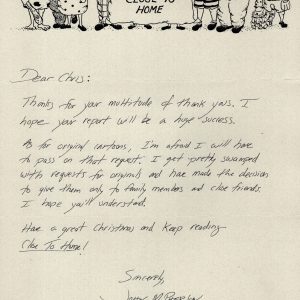 CLOSE TO
HOME
Dear Chris:
Thanks for your multitude of thank yous. I
hope your report will be a huge success.
As for original cartoons, I'm afraid I will have
to pass on that request. I get pretty swamped
with requests for originals and have made the decision
to give them only to family members and close friends.
I hope you'll understand.
Have a great Christmas and keep reading
Close To Home!
Sincerely,